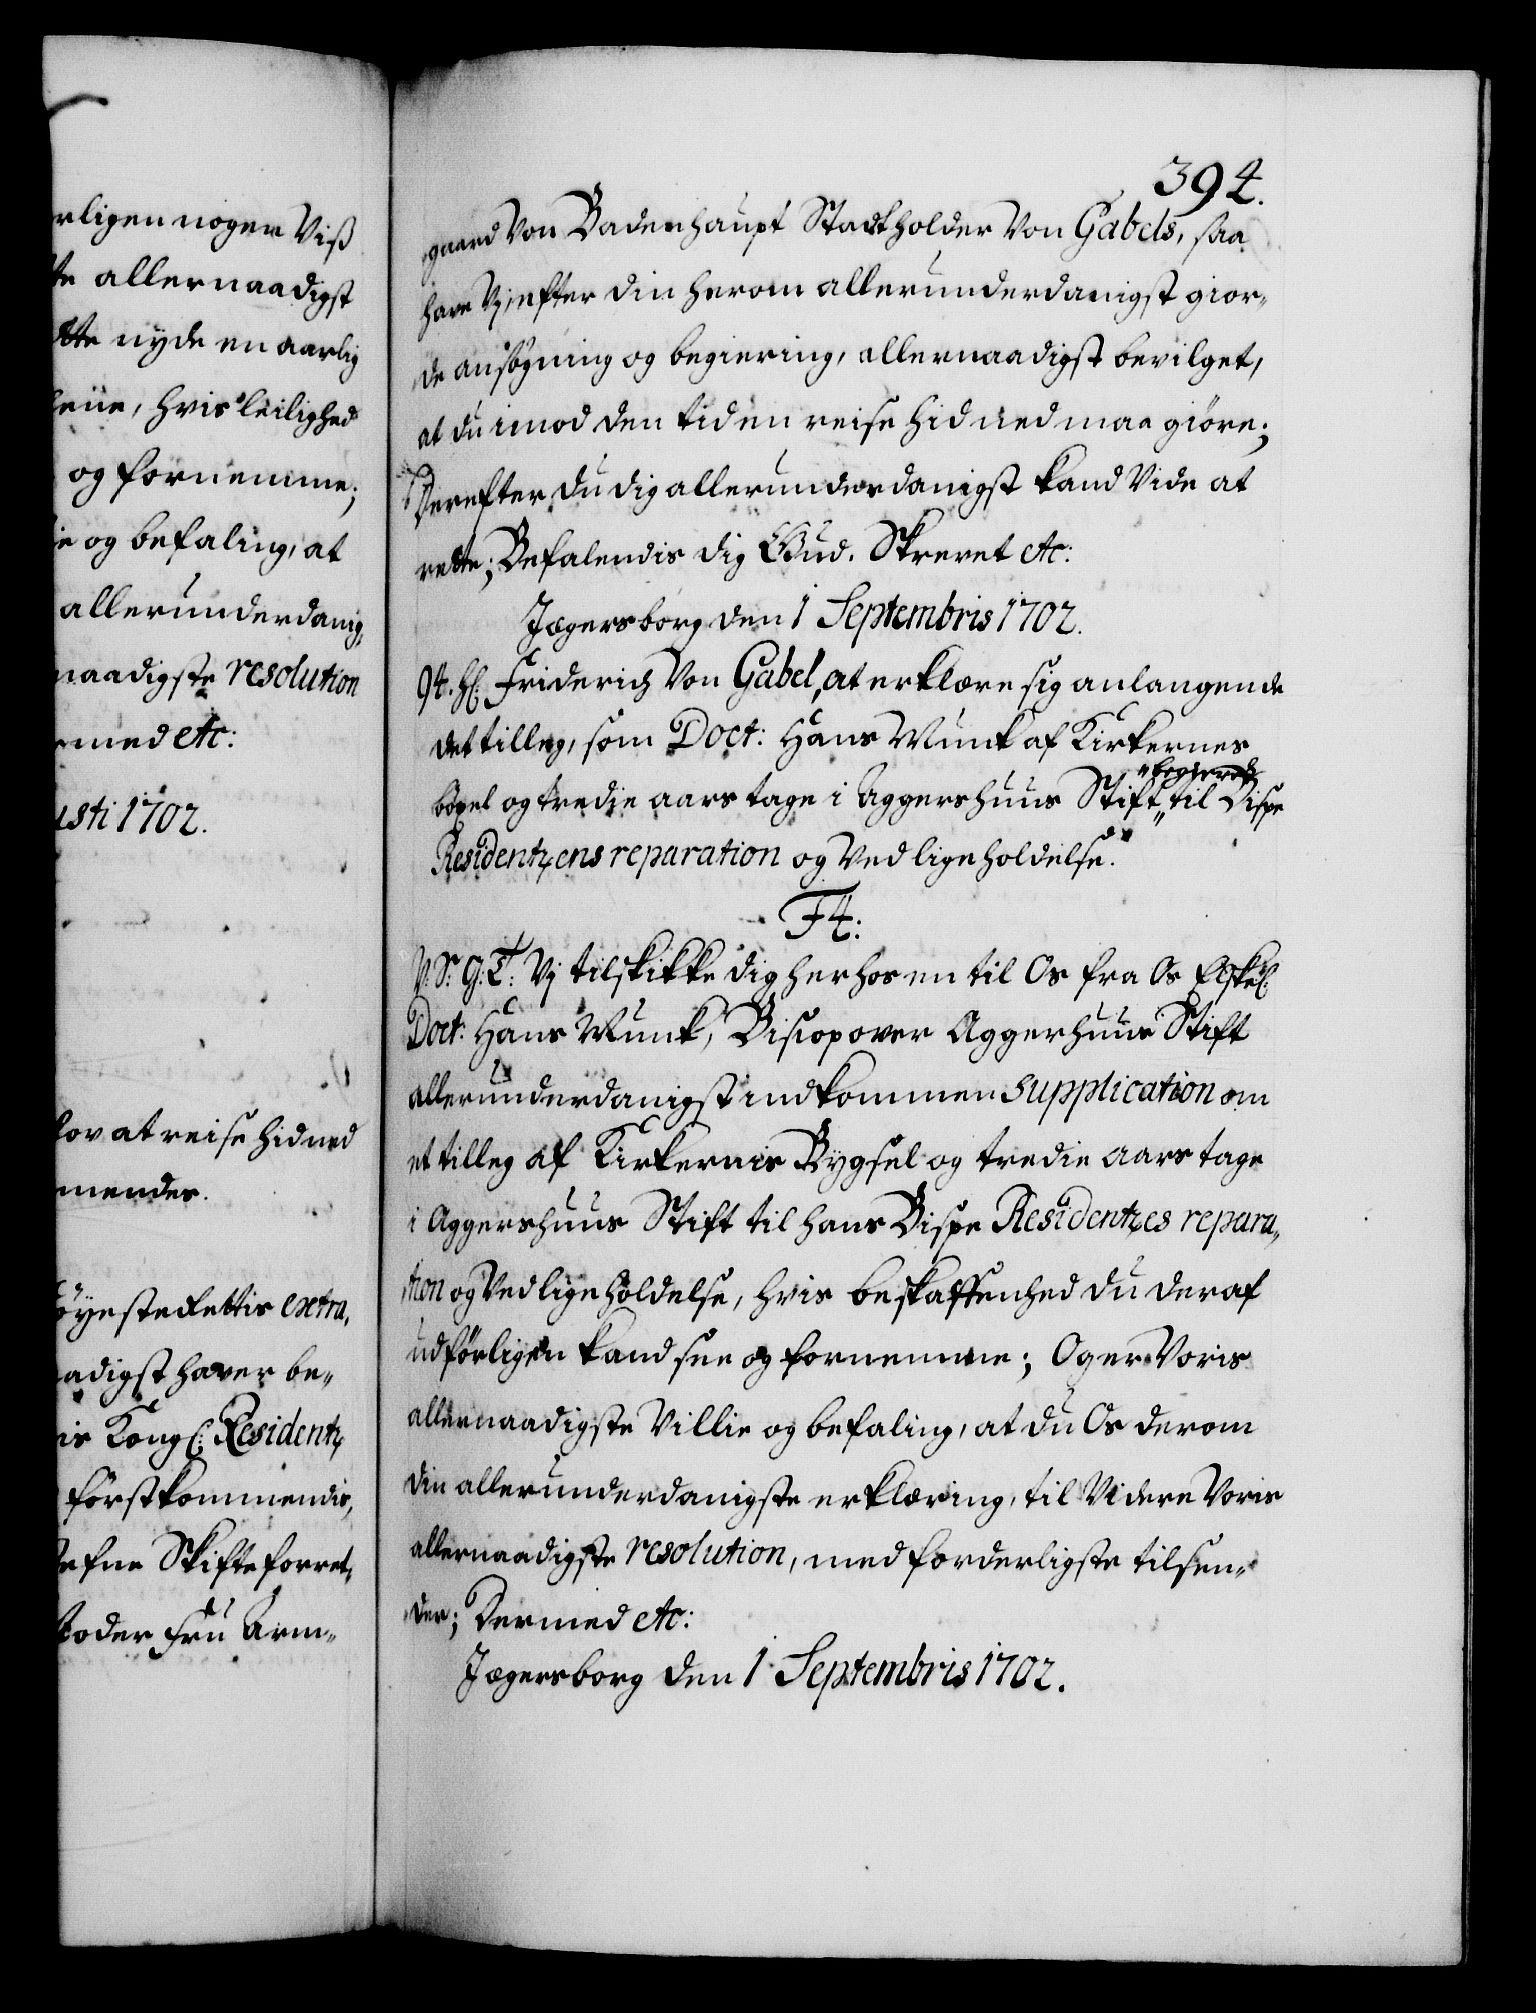 rligen nogen Viß
te allernaadigst
tte nyde en aarlig
heüe, hvis leilighed
og fornemme;
ie og befaling, at
allerunderdanig,
naadigste resolution
med etc:
usti 1702.
lov at reise hid ned
mender.
öyeste Rettis extra,
aadigst haver be„
is Kongl: Residentz
förstkommendis,
efne Skifte forret,
oder Fru Arm„
394.
„gaard Von Badenhaupt Stadtholder Von Gabels, saa
have Vj, efter din herom allerunderdanigst gior„
„de ansögning og begiering, allernaadigst bevilget,
at du imod den tid en reise hid ned maa giöre;
Derefter du dig allerunderdanigst kand Vide at
rette; Befalendis dig Gud. Skrevet etc:
Jægersborg den 1 Septembris 1702.
94. Hl: Friderich Von Gabel, at erklære sig anlangende
det tilleg, som Doct: Hans Munk af Kirkernes
„begierede
böxel og tredie aars tage i Aggershuus Stift „ til Bispe
Residentzens reparation og Vedligeholdelse.
F4:
V. S. G. T. Vj tilskikke dig herhos en til Os fra Os Elskel:
Doct: Hans Munk, Biscop over Aggerhuus Stift
allerunderdanigst indkommen supplication om
et tilleg af Kirkernis Bygsel og tredie aars tage
i Aggershuus Stift til hans Bispe Residentzes repara„
„tion og Vedligeholdelse, hvis beskaffenhed du deraf
udförligen kand see og fornemme; Og er Voris
allernaadigste Villie og befaling, at du Os derom
din allerunderdanigste erklæring, til Videre Voris
allernaadigste resolution, med forderligste tilsen„
„der; Dermed etc:
Jægersborg den 1 Septembris 1702.